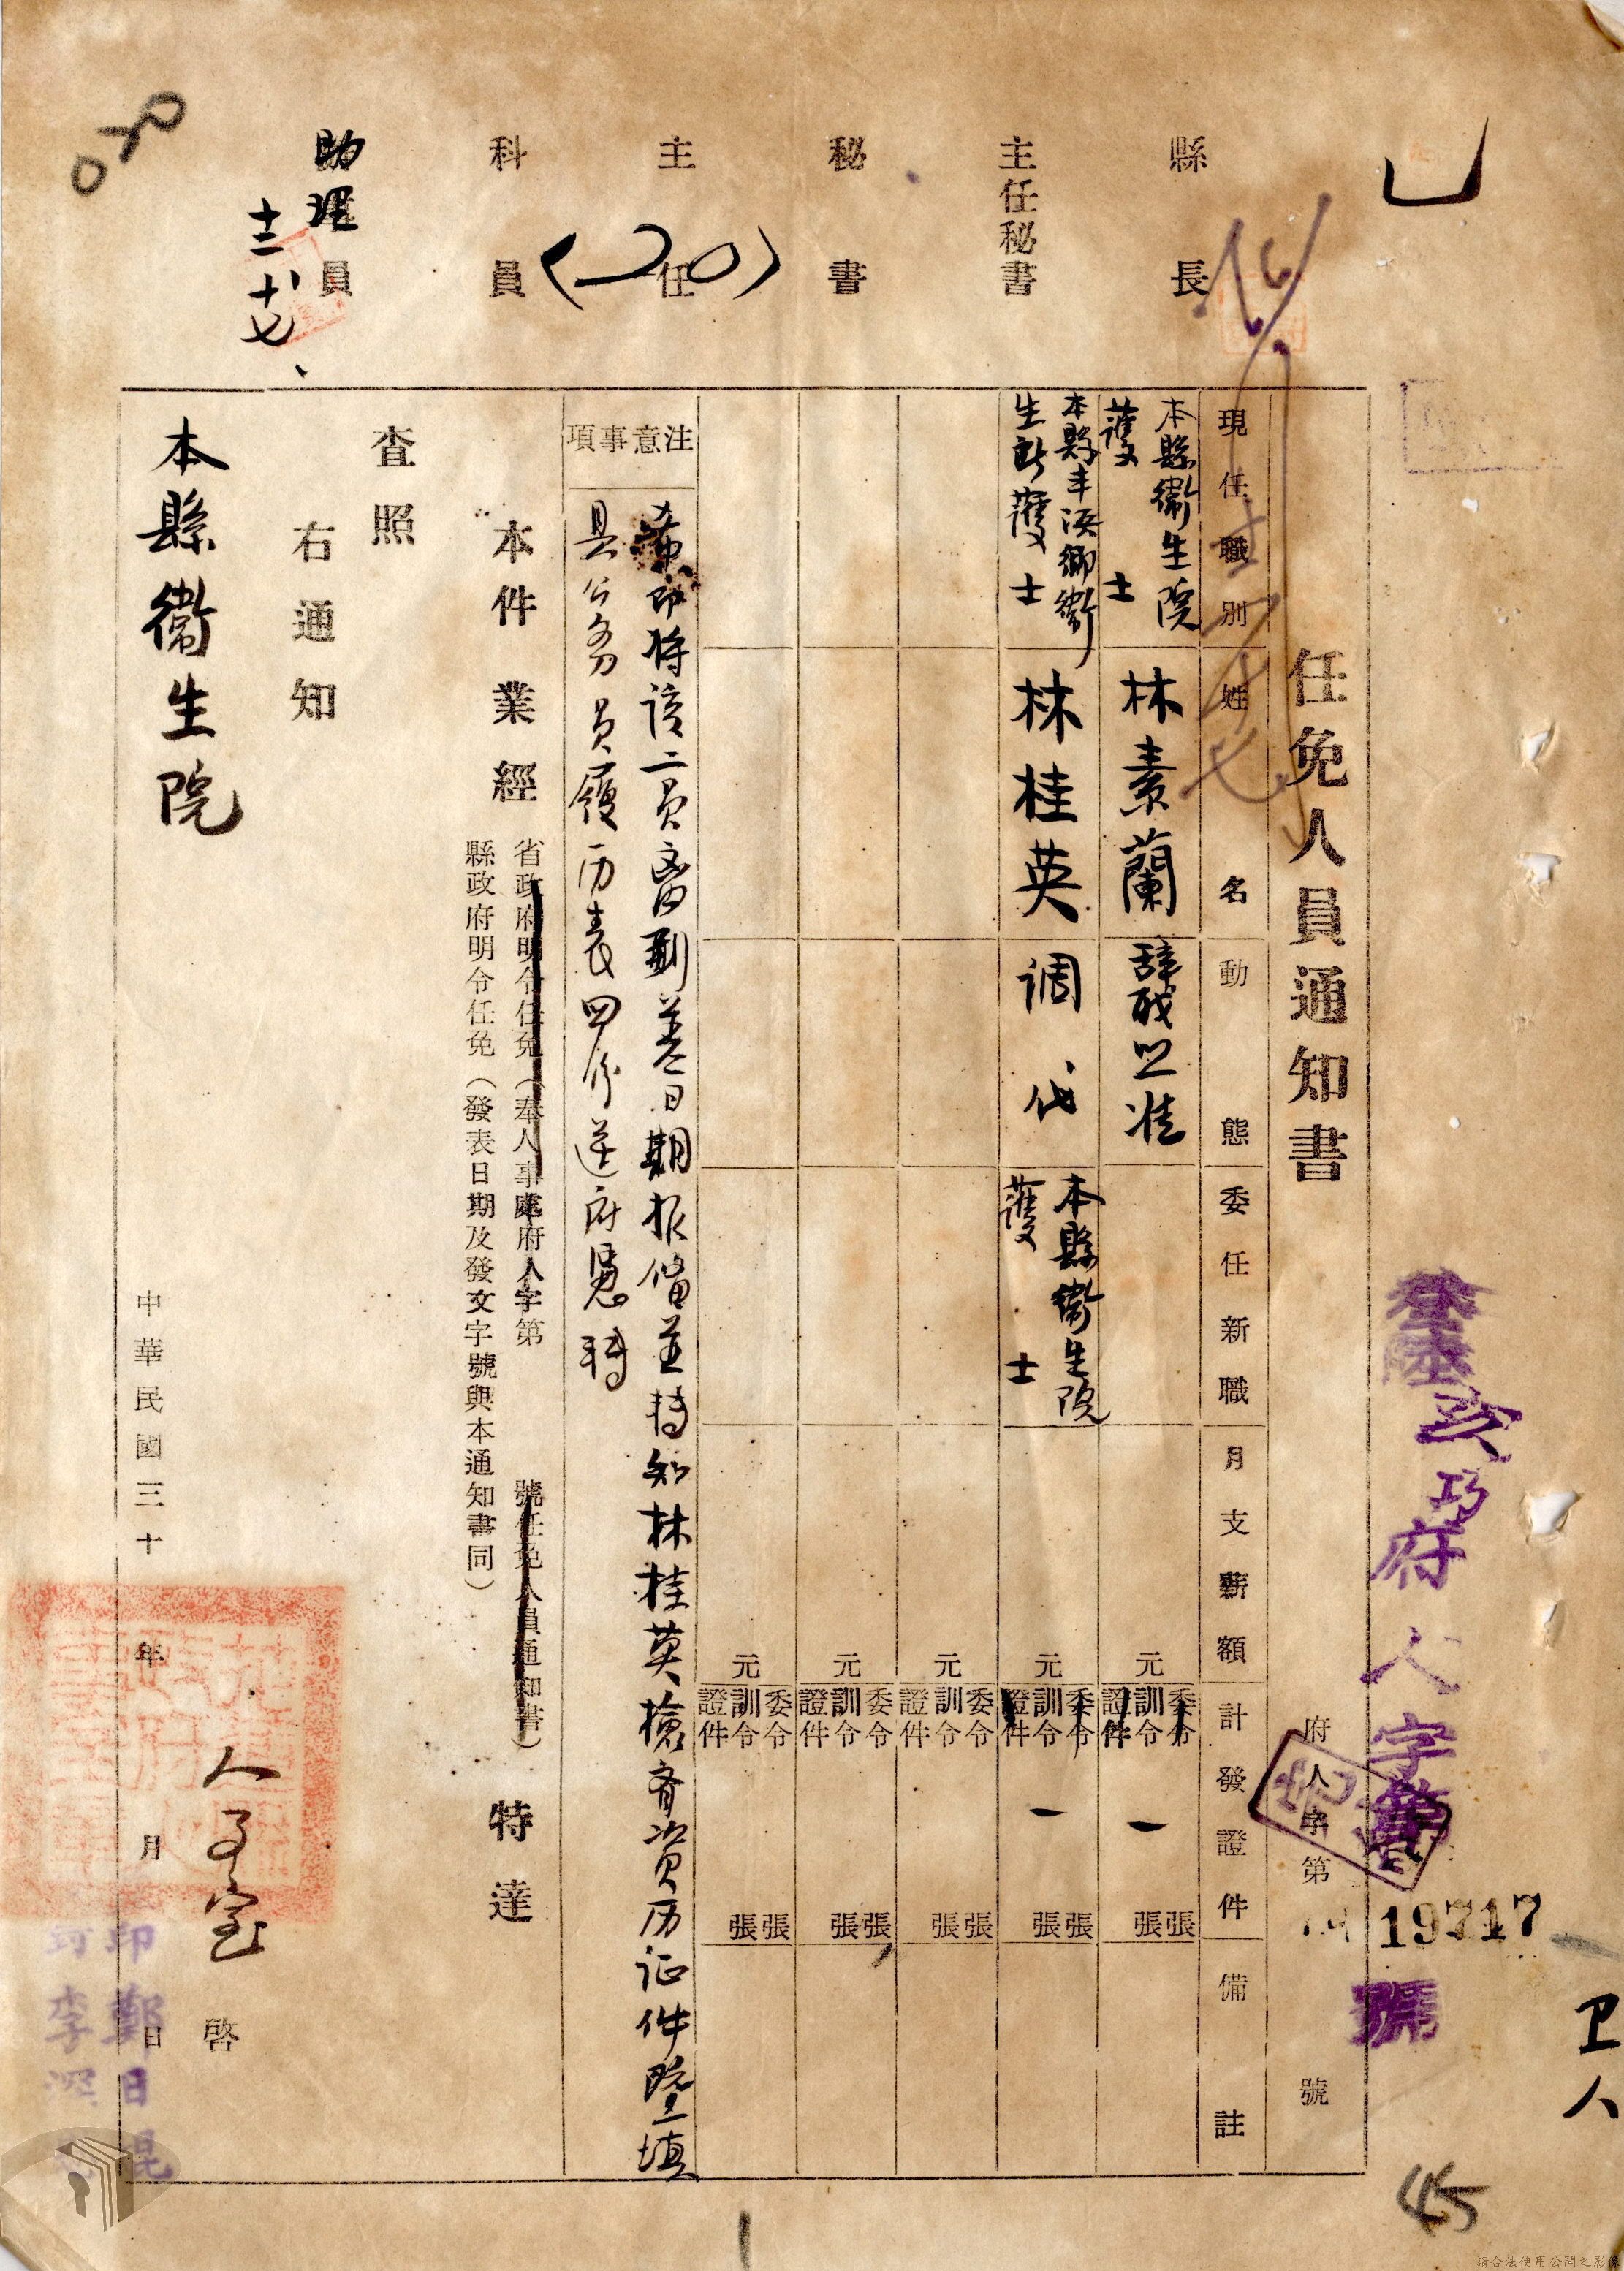 卫人
45
亥巧府人字第19717號
任免人員通知書
府人字第
號
縣長
主任秘書
秘書
主任
科員
助理員
(20)
十二、十七、
現任職別
姓名
動態
委任新職
月支薪額
計發證件
備註
本縣衛生院護士
林素蘭
辞职照准
元
委令
訓令
證件
一
張
張
本縣丰濱鄉衛生所護士
林桂英
调代
本縣衛生院護士
元
委令
訓令
證件
一
張
張
元
委令
訓令
證件
張
張
元
委令
訓令
證件
張
張
元
委令
訓令
證件
張
張
注意事項
希即将该二員离到差日期报備並转知林桂英檢齐资历证件暨填
具公务員履历表四份送府憑转
本件業經
省政府明令任免（奉人事處府人字第　號任免人員通知書）
縣政府明令任免（發表日期及發文字號與本通知書同）
特達
查照
右通知
本縣衛生院
人事室 啓
中華民國三十　年　月　日
印鄭日昆
李
請合法使用公開之影像